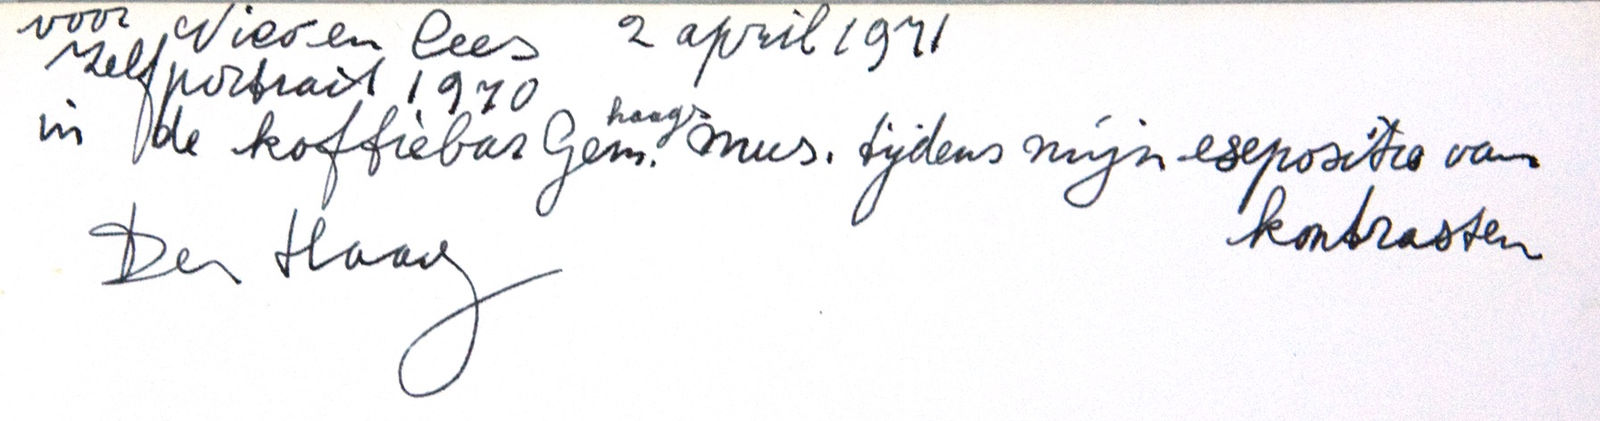 voor Nico en Cees 2 april 1971
zelfportrait 1970
in de koffiebar Gem. haags mus. tijdens mijn esepositie van
kontrasten
Den Haag